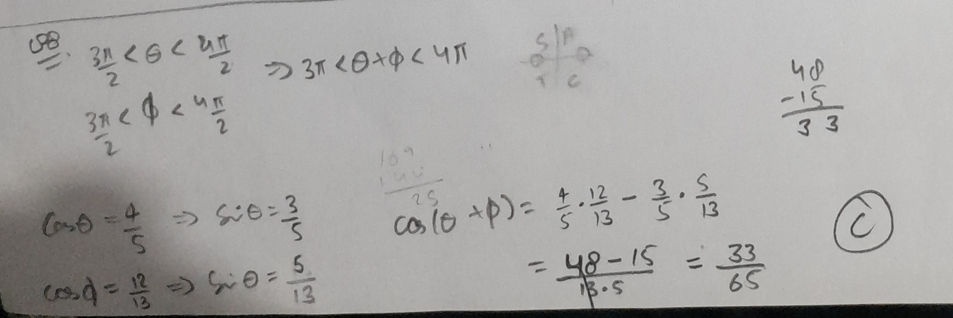 Q8. 3π/2 < θ < 4π/2 ⇒ 3π < θ+φ < 4π
3π/2 < φ < 4π/2
S A
T C
48
-15
33
169
144
25
Cosθ = 4/5 ⇒ Sinθ = 3/5
cosφ = 12/13 ⇒ Sinθ = 5/13
cos(θ+φ) = 4/5 · 12/13 - 3/5 · 5/13
= 48-15/13·5 = 33/65
C